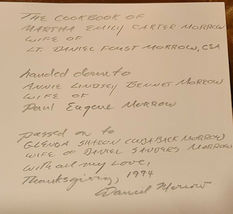 THE COOKBOOK OF
MARTHA EMILY CARTER MORROW
WIFE OF
LT. DANIEL FOUST MORROW, CSA
handed down to
ANNIE LINDSEY BENNET MORROW
WIFE OF
Paul Eugene Morrow
passed on to
GLENDA SHARON CUBABACK MORROW
WIFE of DANIEL SANDERS MORROW
with all my love,
Thanksgiving, 1994
Daniel Morrow